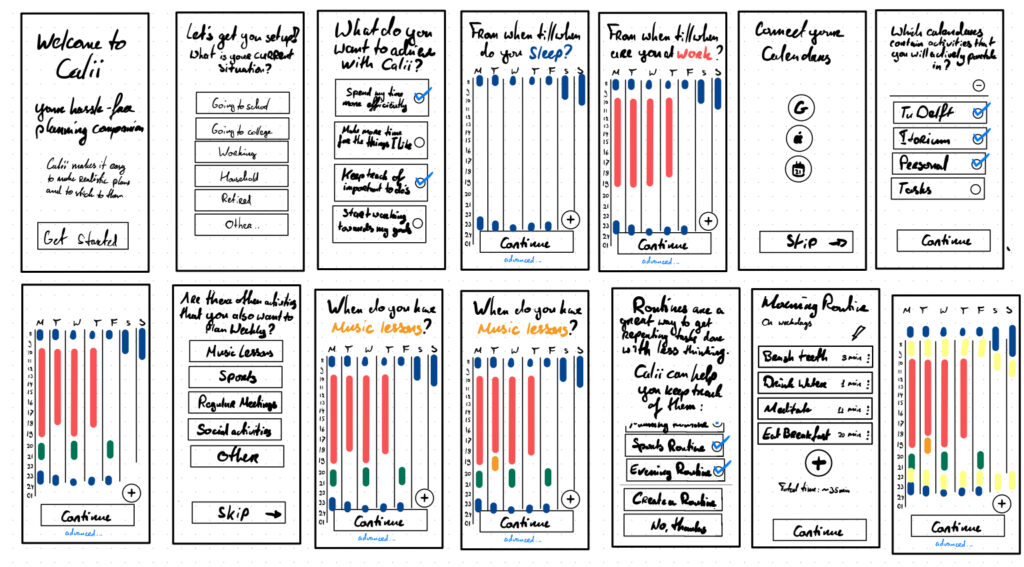 Welcome to
Calii
your hassle-free
planning companion
Calii makes it easy
to make realistic plans
and to stick to them
Get Started
Let's get you setup!
What is your current
situation?
Going to school
Going to college
Working
Household
Retired
Other..
What do you
want to achieve
with Calii?
Spend my time
more efficiently
Make more time
for the things I like
Keep track of
important to do's
Start working
towards my goals
From when till when
do you Sleep?
M T W T F S S
Continue
advanced...
From when till when
are you at Work?
M T W T F S S
Continue
advanced...
Connect your
Calendars
G
31
Skip →
Which calendars
contain activities that
you will actively partake
in?
Tu Delft
Itorium
Personal
Tasks
Continue
M T W T F S S
Continue
advanced...
Are there other activities
that you also want to
Plan Weekly?
Music Lessons
Sports
Regular Meetings
Social activities
Other
Skip →
When do you have
Music lessons?
M T W T F S S
Continue
advanced...
When do you have
Music lessons?
M T W T F S S
Continue
advanced...
Routines are a
great way to get
repeating tasks done
with less thinking.
Calii can help
you keep track
of them:
Sports Routine
Evening Routine
Create a Routine
No, thanks
Morning Routine
On weekdays
Brush teeth 3 min
Drink Water 1 min
Meditate 11 min
Eat Breakfast 20 min
Total time: ~35min
Continue
M T W T F S S
Continue
advanced...